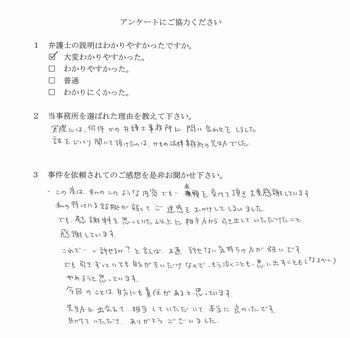 アンケートにご協力ください
1 弁護士の説明はわかりやすかったですか。
☑ 大変わかりやすかった。
□ わかりやすかった。
□ 普通
□ わかりにくかった。
2 当事務所を選ばれた理由を教えて下さい。
実際には、何件かの弁護士事務所に問い合わせをしました
話をじっくり聞いて頂けたのは、かもめ法律事務所の先生でした
3 事件を依頼されてのご感想を是非お聞かせ下さい。
・この度は、私のこのような内容でも、依頼を受けて頂き大変感謝しています
私の持っている証拠が弱くてご迷惑をおかけしてしまいました
でも、慰謝料を思っていた以上に相手方から引き出していただけたこと、
感謝しています。
これで…許せるか?と言えば、正直許せない気持ちの方が強いです
でも引きずっていても自分が辛いだけなので、もう泣くことも、思い出すことも(なるべく)
やめようと思っています。
今回のことは自分にも責任があると、思っています。
先生方に出会えて、担当していただいて本当に良かったです。
助けていただき、ありがとうございました。